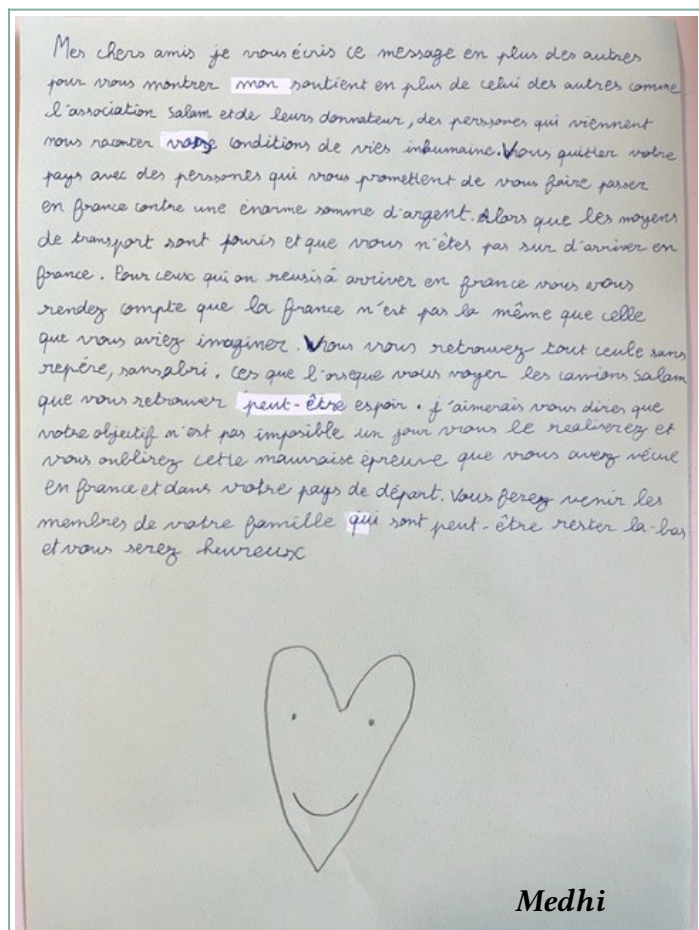 Mes chers amis je vous écris ce message en plus des autres
pour vous montrer mon soutient en plus de celui des autres comme
l'association Salam et de leurs donnateur, des perssones qui viennent
nous raconter votre conditions de vies inhumaine. Vous quitter votre
pays avec des perssones qui vous promettent de vous faire passer
en france contre une énorme somme d'argent. Alors que les moyens
de transport sont pouris et que vous n'êtes pas sur d'arriver en
france. Pour ceux qui on reusisá arriver en france vous vous
rendez compte que la france n'est pas la même que celle
que vous aviez imaginer. Vous vous retrouvez tout ceule sans
repére, sans abri. Ces que l'orseque vous voyer les camions Salam
que vous retrouver peut-être espoir. j'aimerais vous dires que
votre objectif n'est pas imposible un jour vous le realiserez et
vous oublirez cette mauvaise épreuve que vous avez vécue
en france et dans votre pays de départ. Vous ferez venir les
membres de votre famille qui sont peut-être rester la-bas
et vous serez heureux
Medhi